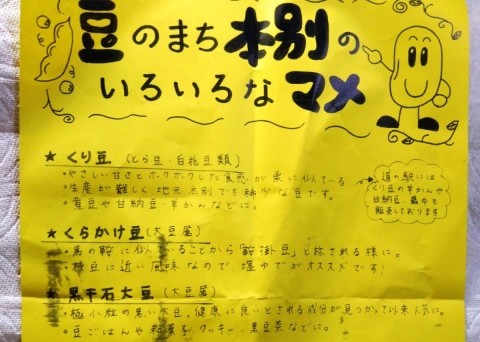 豆のまち本別の
いろいろなマメ
★くり豆(とら豆・白花豆類)
・やさしい甘さとホクホクした食感が栗に似ている
・生産が難しく地元本別でも稀少な豆です。
・煮豆や甘納豆・羊かんなどに。
道の駅には
くり豆の羊かんや
甘納豆、最中を
販売しております
★くらかけ豆(大豆属)
・馬の鞍に似ていることから「鞍掛豆」と称される様に。
・枝豆に近い風味なので、塩ゆでがオススメです!
★黒千石大豆(大豆属)
・極小粒の黒い大豆。健康に良いとされる成分が見つかって以来人気に。
・豆ごはんや和菓子、クッキー・黒豆茶などに。